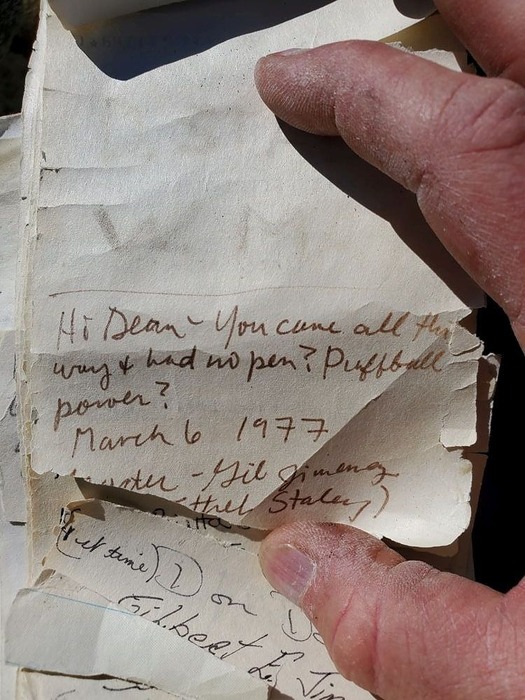 Hi Dean - You came all this
way & had no pen? Puffball
power?
March 6 1977
- Gil Jimenez
Staley)
time) 1 on
Gilbert L. Jim